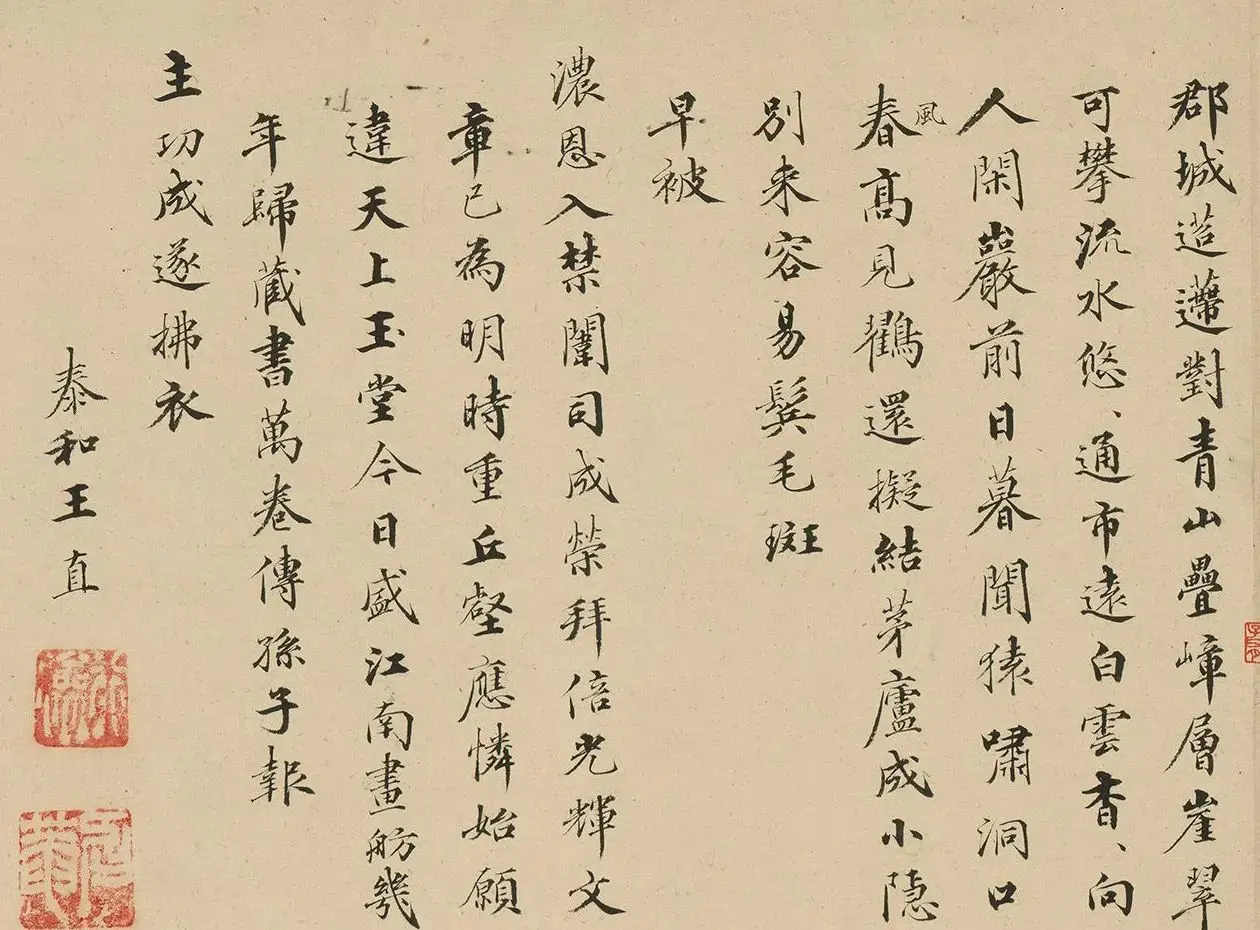 郡城迢遰對青山疊嶂層崖翠
可攀流水悠、通市遠白雲杳、向
人閑巖前日暮聞猿嘯洞口
春風高見鸖還擬結茅廬成小隱
別来容易鬂毛斑
早被
濃恩入禁闈司成榮拜倍光輝文
章已為明時重丘壑應憐始願
違天上玉堂今日盛江南畫舫幾
年歸藏書萬卷傳孫子報
主功成遂拂衣
泰和王直